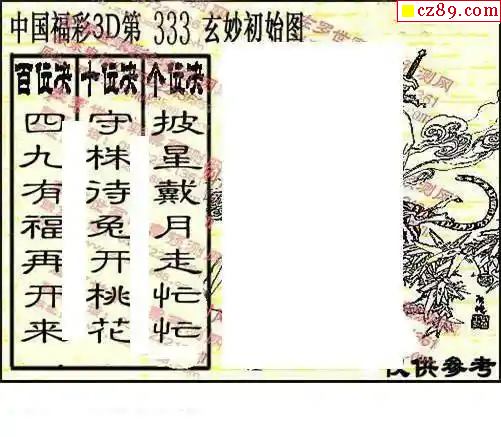 cz89.com
中国福彩3D第 333 玄妙初始图
百位决
四九有福再开来
十位决
守株待兔开桃花
个位决
披星戴月走忙忙
供参考